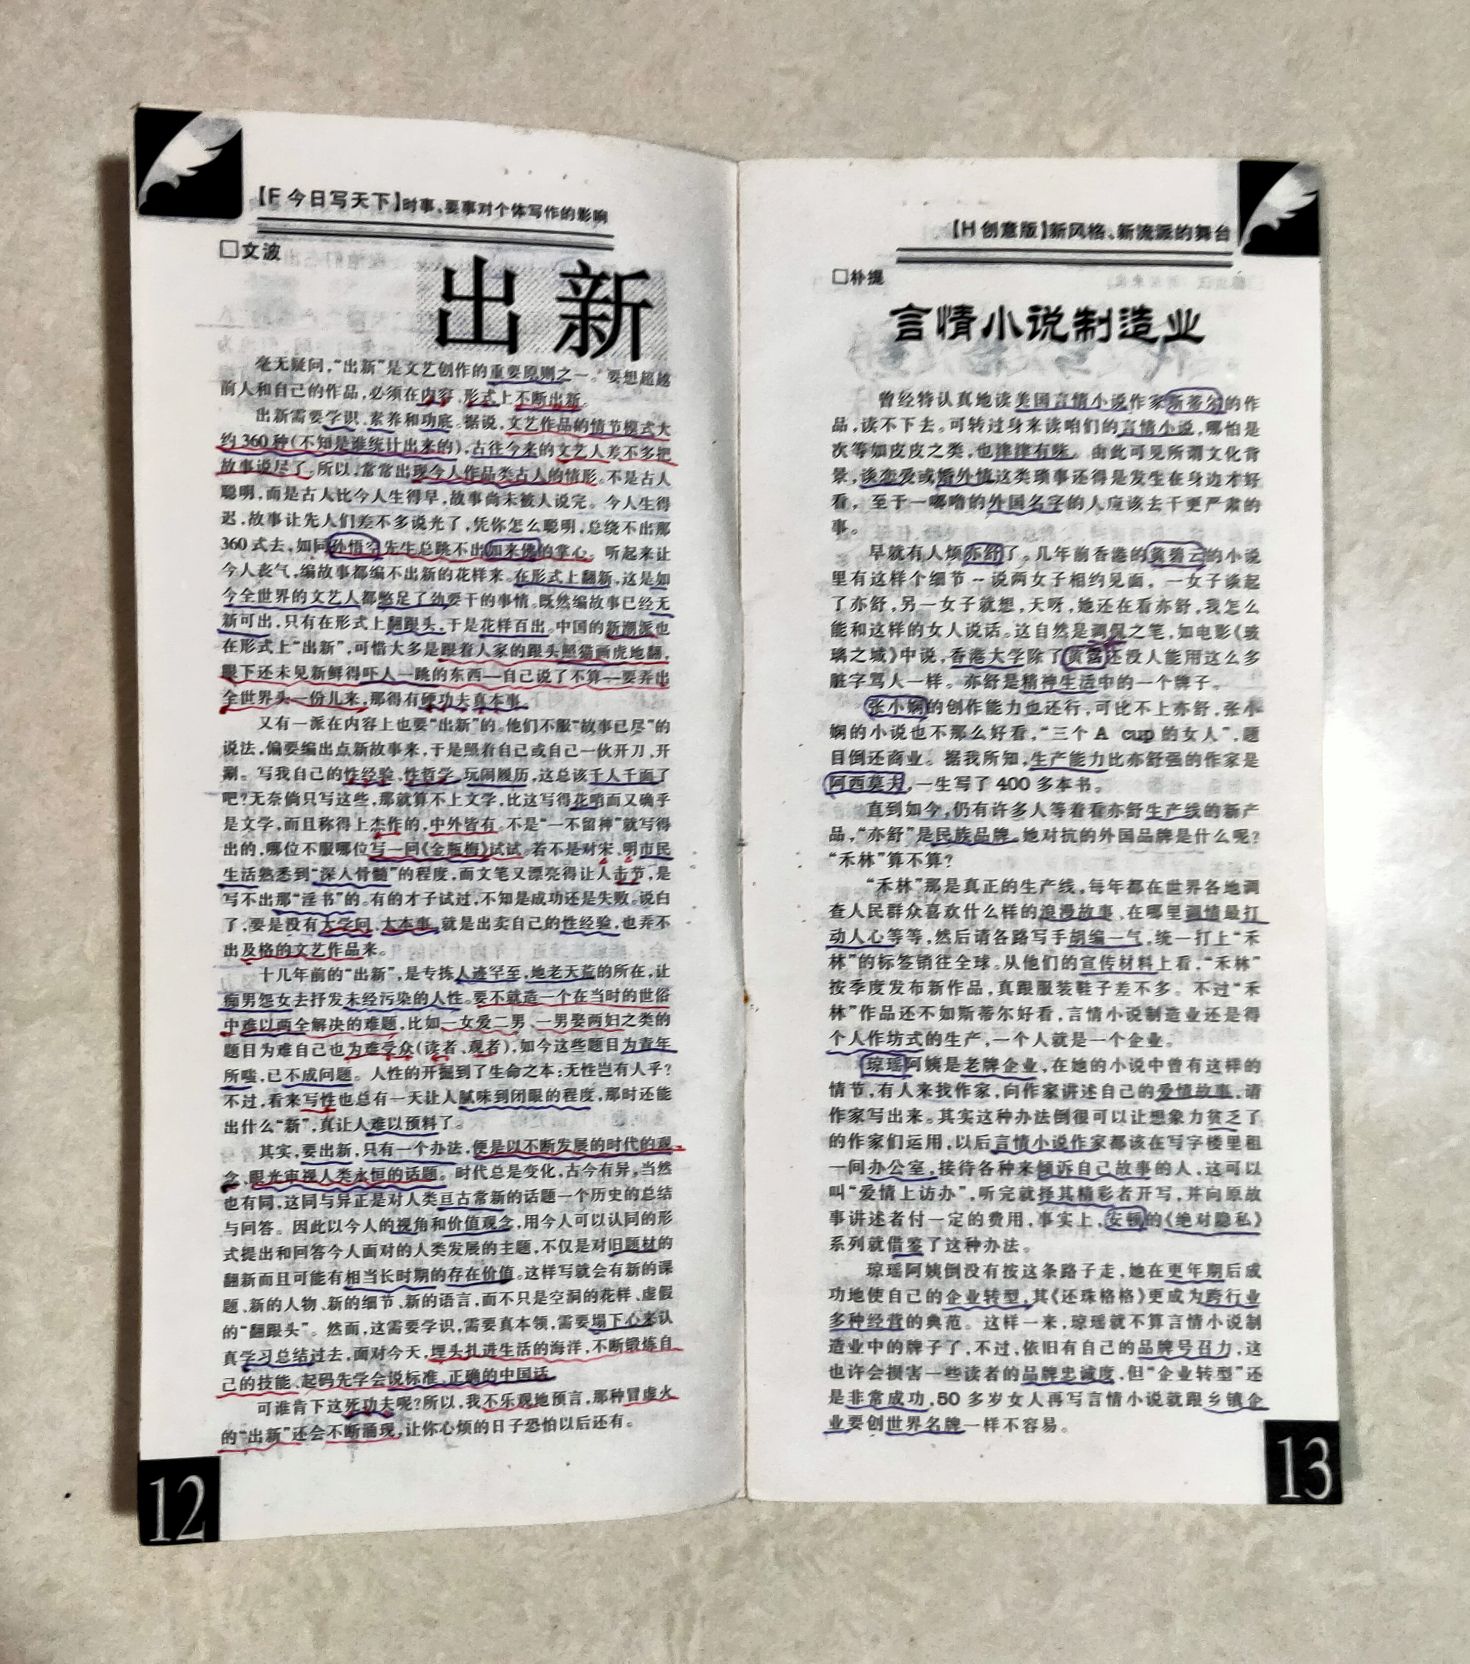 【F 今日写天下】时事、要事对个体写作的影响
□文波
出新
毫无疑问，“出新”是文艺创作的重要原则之一。要想超越
前人和自己的作品，必须在内容、形式上不断出新。
出新需要学识、素养和功底。据说，文艺作品的情节模式大
约360种(不知是谁统计出来的)，古往今来的文艺人差不多把
故事说尽了。所以，常常出现今人作品类古人的情形。不是古人
聪明，而是古人比今人生得早，故事尚未被人说完。今人生得
迟，故事让先人们差不多说光了，凭你怎么聪明，总绕不出那
360式去，如同孙悟空先生总跳不出如来佛的掌心。听起来让
今人丧气，编故事都编不出新的花样来。在形式上翻新，这是如
今全世界的文艺人都憋足了劲要干的事情。既然编故事已经无
新可出，只有在形式上翻跟头，于是花样百出。中国的新潮派也
在形式上“出新”，可惜大多是跟着人家的跟头照猫画虎地翻，
眼下还未见新鲜得吓人一跳的东西—自己说了不算—要弄出
全世界头一份儿来，那得有硬功夫真本事。
又有一派在内容上也要“出新”的。他们不服“故事已尽”的
说法，偏要编出点新故事来，于是照着自己或自己一伙开刀，开
涮。写我自己的性经验、性哲学、玩闹履历，这总该千人千面了
吧？无奈倘只写这些，那就算不上文学，比这写得花哨而又确乎
是文学，而且称得上杰作的，中外皆有。不是“一不留神”就写得
出的，哪位不服哪位写一回《金瓶梅》试试。若不是对宋、明市民
生活熟悉到“深入骨髓”的程度，而文笔又漂亮得让人击节，是
写不出那“淫书”的。有的才子试过，不知是成功还是失败。说白
了，要是没有大学问、大本事，就是出卖自己的性经验，也弄不
出及格的文艺作品来。
十几年前的“出新”，是专拣人迹罕至、地老天荒的所在，让
痴男怨女去抒发未经污染的人性。要不就造一个在当时的世俗
中难以两全解决的难题，比如一女爱二男、一男娶两妇之类的
题目为难自己也为难受众(读者、观者)，如今这些题目为青年
所嗤，已不成问题。人性的开掘到了生命之本：无性岂有人乎？
不过，看来写性也总有一天让人腻味到闭眼的程度，那时还能
出什么“新”，真让人难以预料了。
其实，要出新，只有一个办法，便是以不断发展的时代的观
念、眼光审视人类永恒的话题。时代总是变化，古今有异，当然
也有同，这同与异正是对人类亘古常新的话题一个历史的总结
与回答。因此以今人的视角和价值观念，用今人可以认同的形
式提出和回答今人面对的人类发展的主题，不仅是对旧题材的
翻新而且可能有相当长时期的存在价值。这样写就会有新的课
题、新的人物、新的细节、新的语言，而不只是空洞的花样、虚假
的“翻跟头”。然而，这需要学识，需要真本领，需要塌下心来认
真学习总结过去，面对今天，埋头扎进生活的海洋，不断锻炼自
己的技能、起码先学会说标准、正确的中国话。
可谁肯下这死功夫呢？所以，我不乐观地预言，那种冒虚火
的“出新”还会不断涌现，让你心烦的日子恐怕以后还有。
12
【H 创意版】新风格、新流派的舞台
□朴提
言情小说制造业
曾经特认真地读美国言情小说作家斯蒂尔的作
品，读不下去。可转过身来读咱们的言情小说，哪怕是
次等如皮皮之类，也津津有味。由此可见所谓文化背
景，谈恋爱或婚外情这类琐事还得是发生在身边才好
看，至于一嘟噜的外国名字的人应该去干更严肃的
事。
早就有人烦亦舒了。几年前香港的黄碧云的小说
里有这样个细节--说两女子相约见面，一女子谈起
了亦舒，另一女子就想，天呀，她还在看亦舒，我怎么
能和这样的女人说话。这自然是调侃之笔，如电影《玻
璃之城》中说，香港大学除了黄霑还没人能用这么多
脏字骂人一样。亦舒是精神生活中的一个牌子。
张小娴的创作能力也还行，可比不上亦舒，张小
娴的小说也不那么好看，“三个A cup的女人”，题
目倒还商业。据我所知，生产能力比亦舒强的作家是
阿西莫夫，一生写了400多本书。
直到如今，仍有许多人等看看亦舒生产线的新产
品，“亦舒”是民族品牌，她对抗的外国品牌是什么呢？
“禾林”算不算？
“禾林”那是真正的生产线，每年都在世界各地调
查人民群众喜欢什么样的浪漫故事，在哪里调情最打
动人心等等，然后请各路写手胡编一气，统一打上“禾
林”的标签销往全球。从他们的宣传材料上看，“禾林”
按季度发布新作品，真跟服装鞋子差不多。不过“禾
林”作品还不如斯蒂尔好看，言情小说制造业还是得
个人作坊式的生产，一个人就是一个企业。
琼瑶阿姨是老牌企业，在她的小说中曾有这样的
情节，有人来找作家，向作家讲述自己的爱情故事，请
作家写出来。其实这种办法倒很可以让想象力贫乏了
的作家们运用，以后言情小说作家都该在写字楼里租
一间办公室，接待各种来倾诉自己故事的人，这可以
叫“爱情上访办”，听完就择其精彩者开写，并向原故
事讲述者付一定的费用，事实上，安顿的《绝对隐私》
系列就借鉴了这种办法。
琼瑶阿姨倒没有按这条路子走，她在更年期后成
功地使自己的企业转型，其《还珠格格》更成为跨行业
多种经营的典范。这样一来，琼瑶就不算言情小说制
造业中的牌子了，不过，依旧有自己的品牌号召力，这
也许会损害一些读者的品牌忠诚度，但“企业转型”还
是非常成功，50多岁女人再写言情小说就跟乡镇企
业要创世界名牌一样不容易。
13